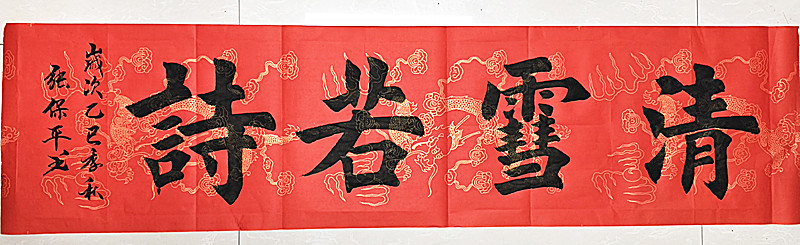 清雪若詩
歲次乙巳季秋
張保平書